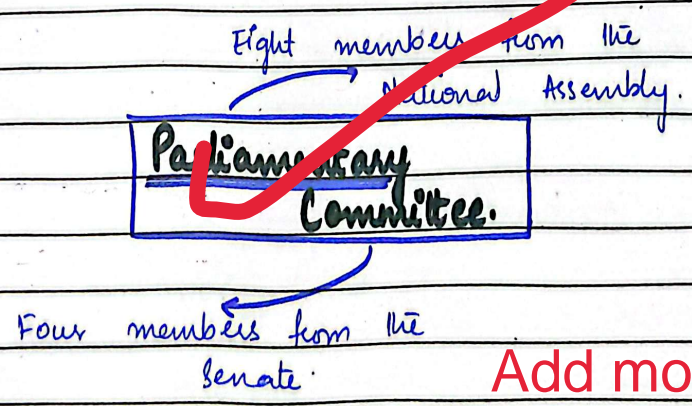 Eight members from the
National Assembly.
Parliamentary
Committee.
Four members from the
Senate.
Add mo